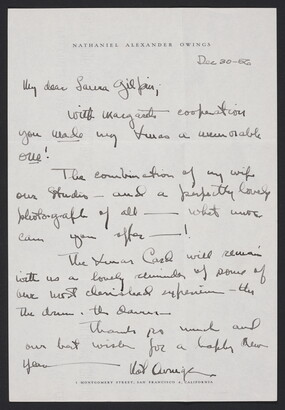 NATHANIEL ALEXANDER OWINGS
Dec 20-56
My dear Laura Gilpin;
With Margarets cooperation
you made my Xmas a memorable
one!
The combination of my wife
our Studio - and a perfectly lovely
photograph of all — what more
can you offer — !
The Xmas Card will remain
with us a lovely reminder of some of
our most cherished experience - the
the drum - the dances
Thanks so much and
our best wishes for a happy New
Year — Nat Owings
1 MONTGOMERY STREET, SAN FRANCISCO 4, CALIFORNIA